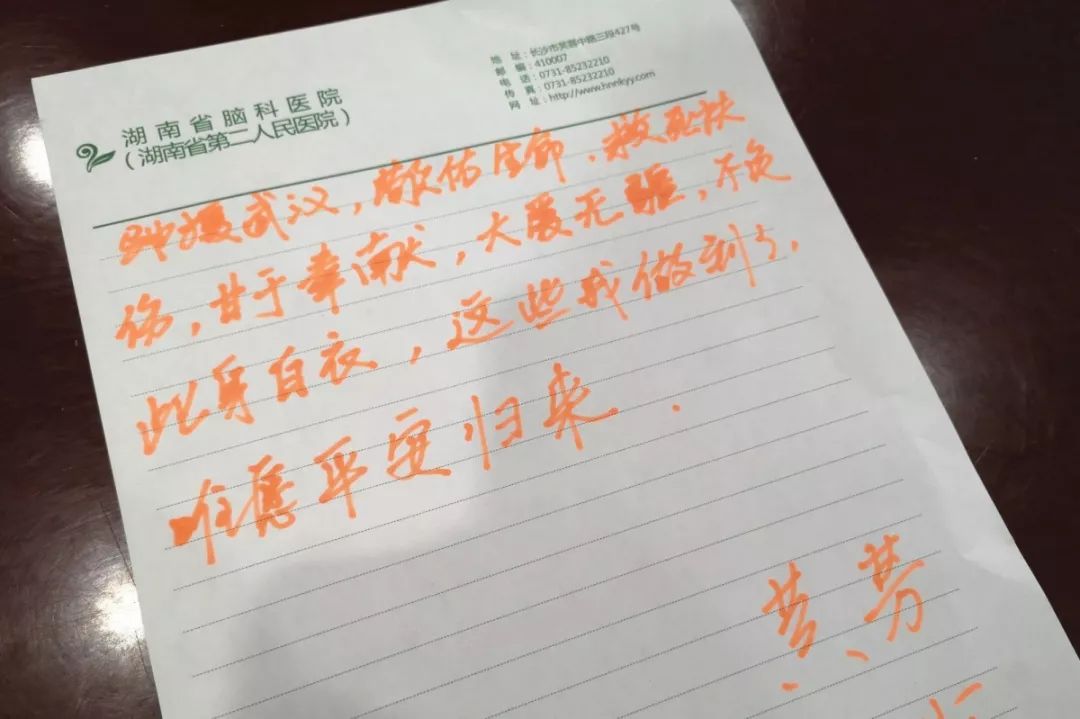 湖南省脑科医院
(湖南省第二人民医院)
地 址：长沙市芙蓉中路三段427号
邮 编：410007
电 话：0731-85232210
传 真：0731-85232210
网 址：http://www.hnnkyy.com
驰援武汉，敬佑生命、救死扶
伤，甘于奉献，大爱无疆，不负
此身白衣，这些我做到了，
惟愿平安归来．
黄芳